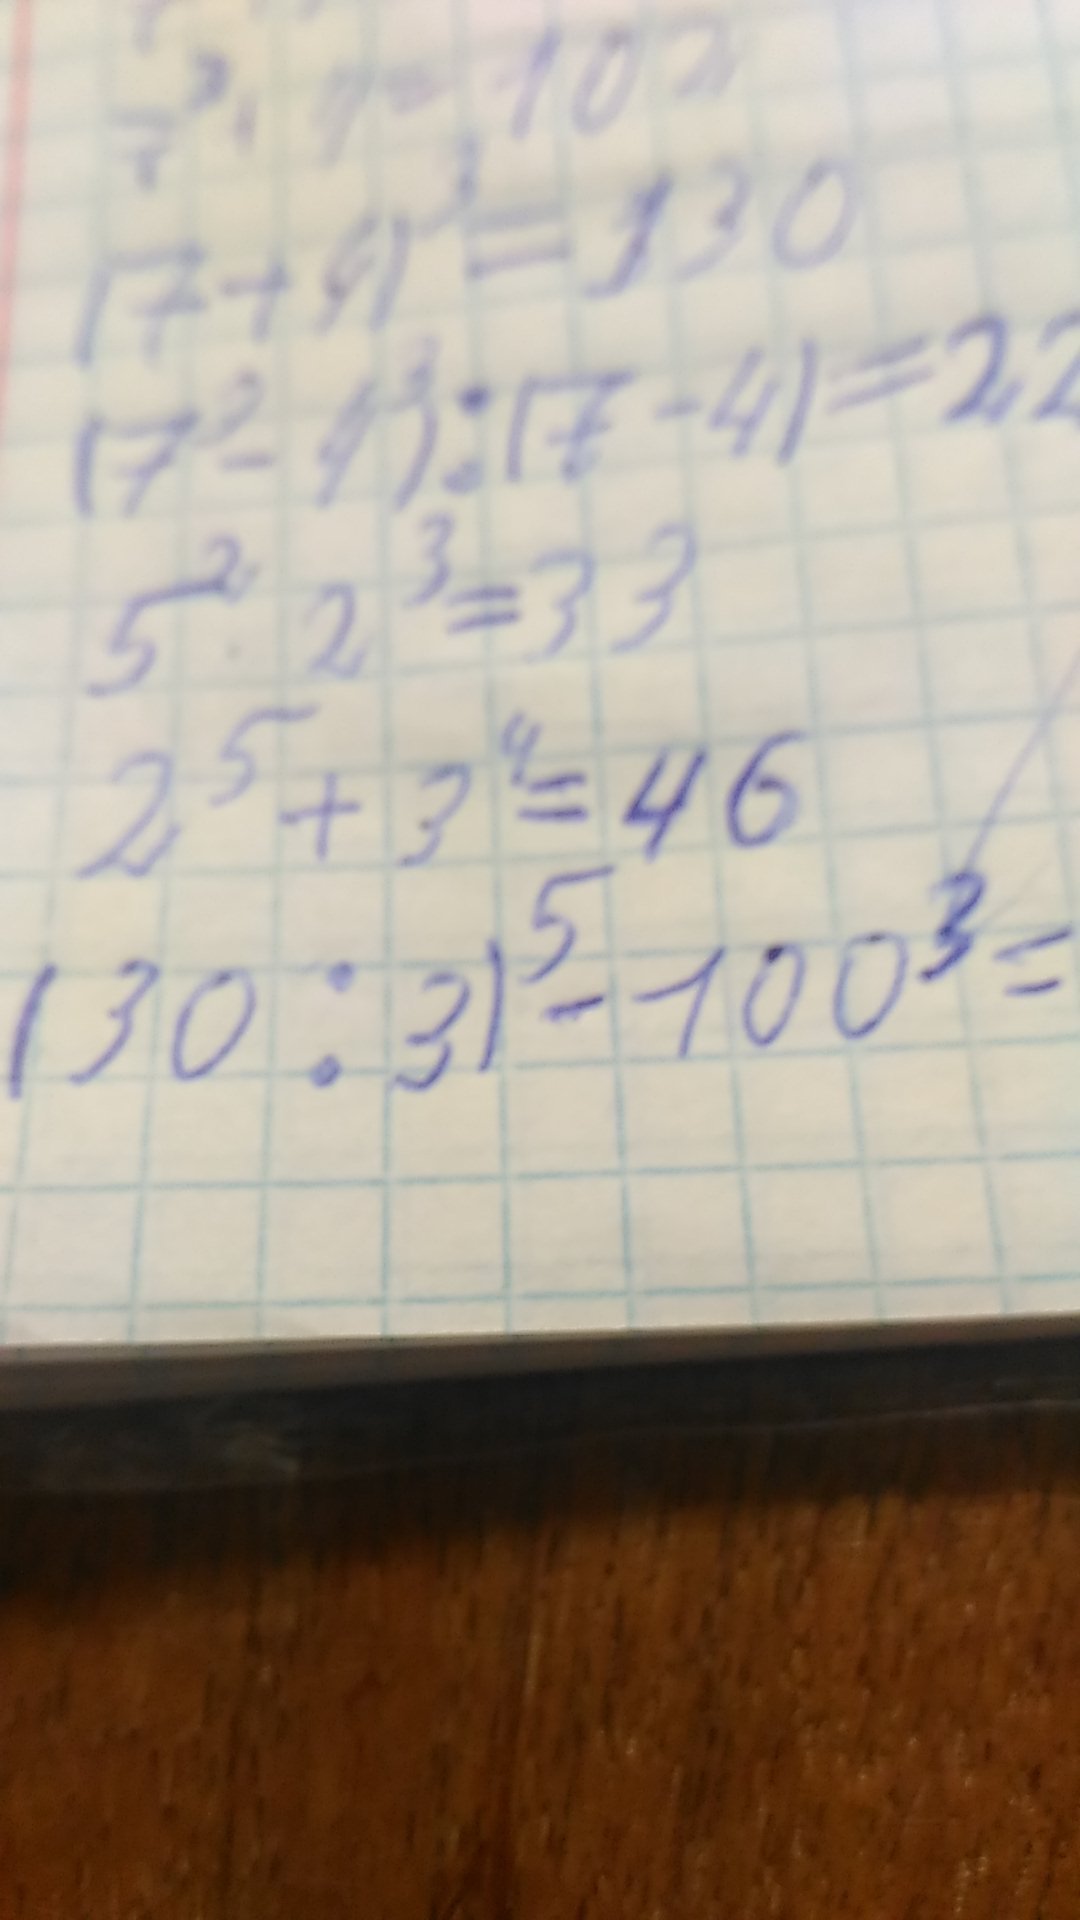 (7+4)³=130
(7³-4³):(7-4)=22
5²·2³=33
2⁵+3⁴=46
(30:3)⁵-100³=